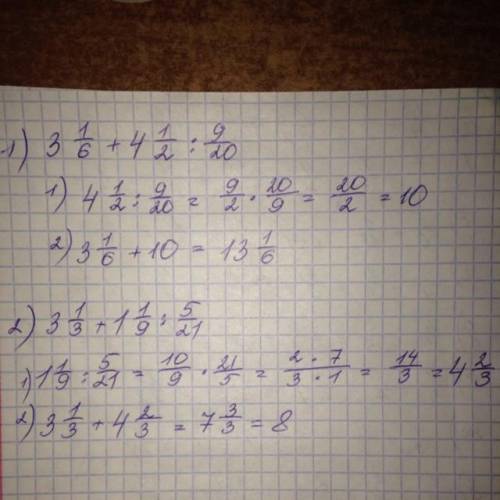 1) 3 1/6 + 4 1/2 : 9/20
1) 4 1/2 : 9/20 = 9/2 · 20/9 = 20/2 = 10
2) 3 1/6 + 10 = 13 1/6
2) 3 1/3 + 1 1/9 : 5/21
1) 1 1/9 : 5/21 = 10/9 · 21/5 = 2 · 7/3 · 1 = 14/3 = 4 2/3
2) 3 1/3 + 4 2/3 = 7 3/3 = 8